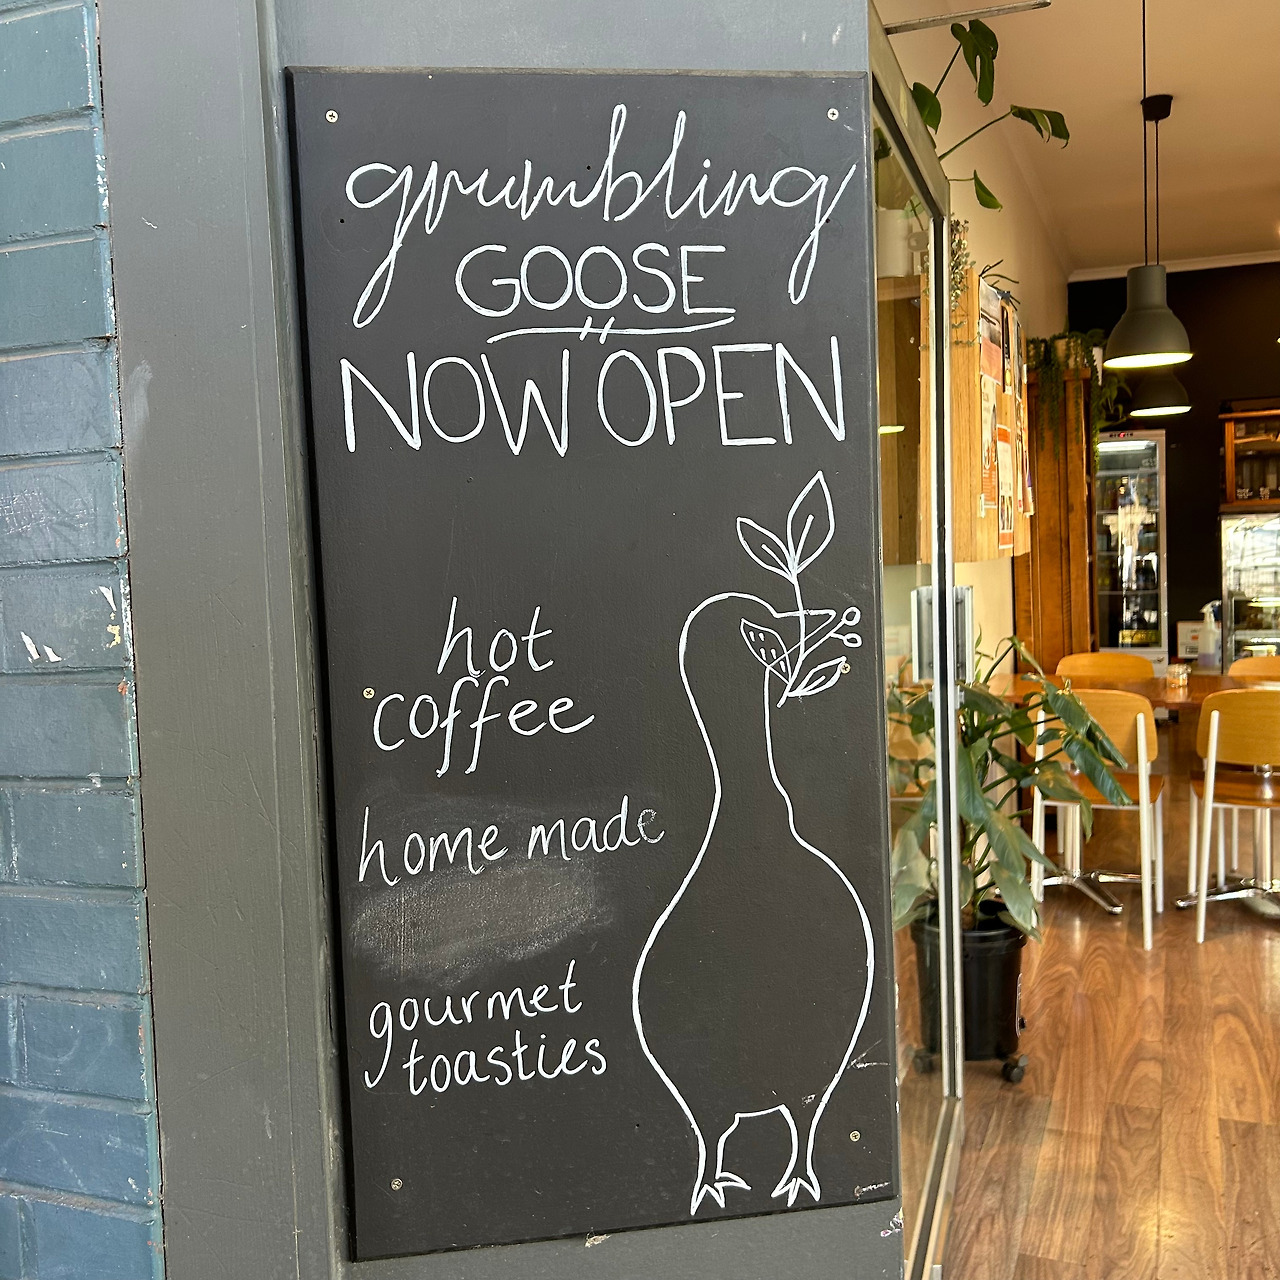 grumbling
GOOSE
NOW OPEN
hot
coffee
home made
gourmet
toasties